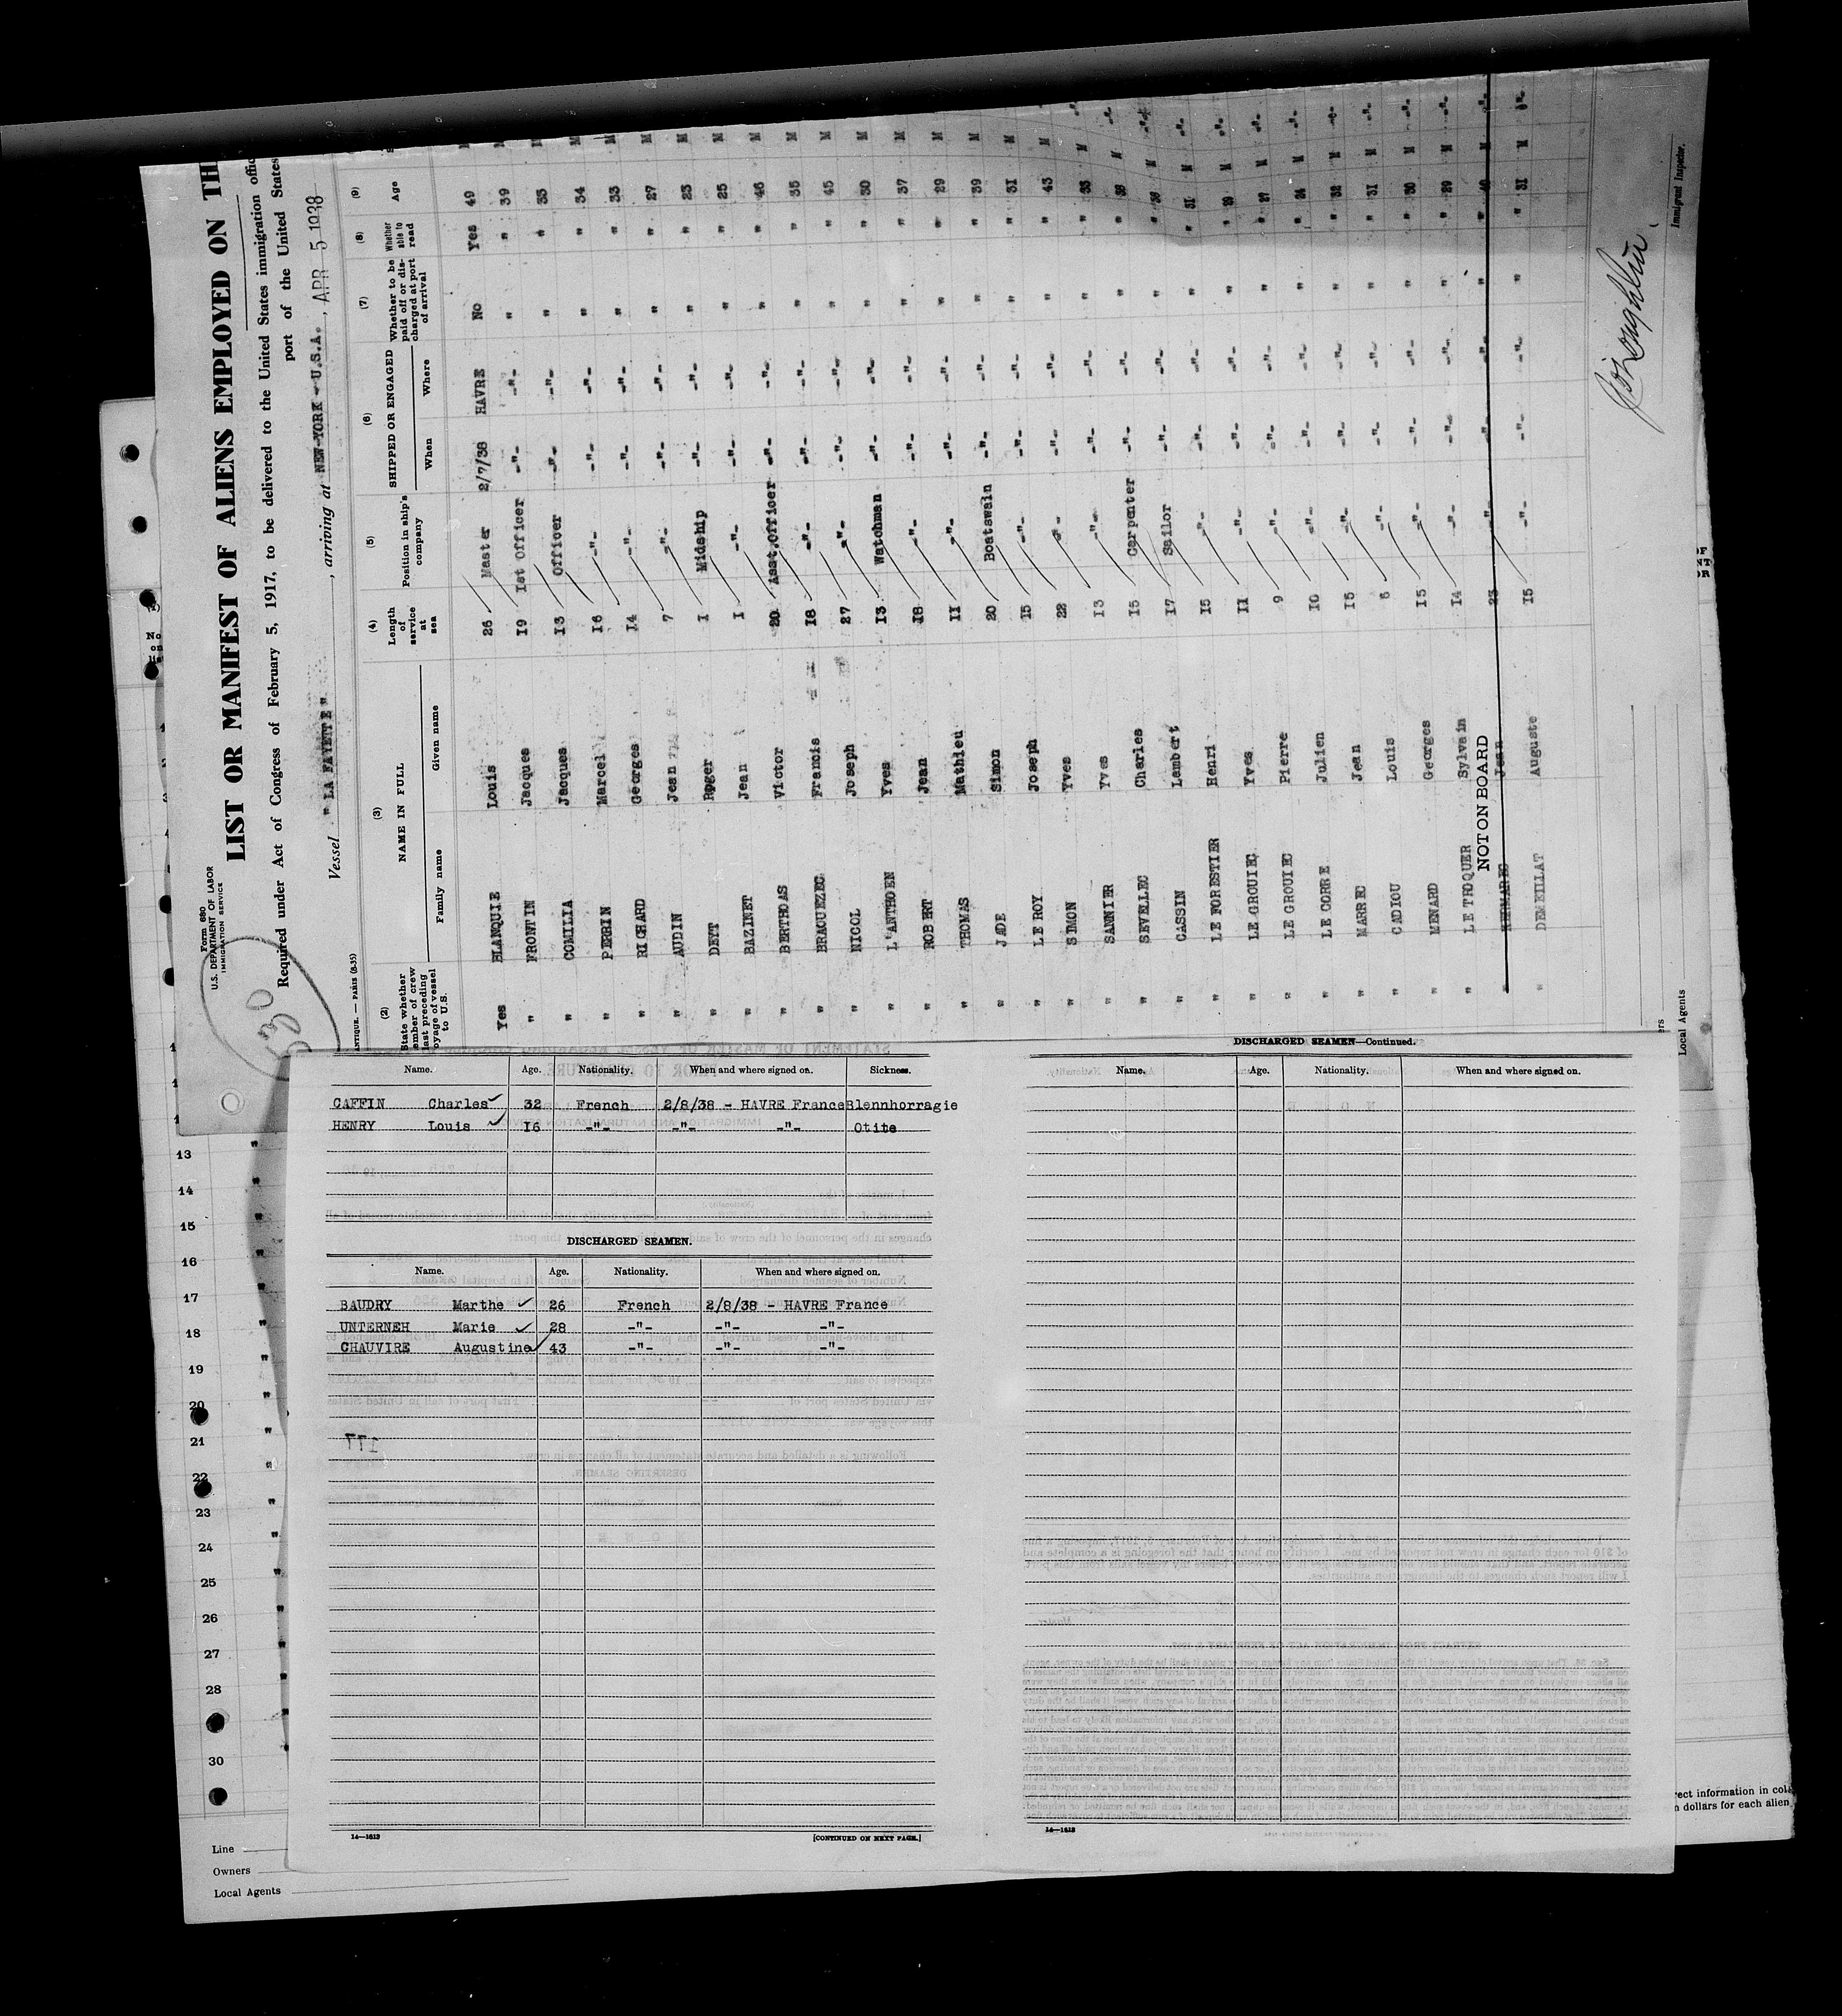 Form 680
U.S. DEPARTMENT OF LABOR
IMMIGRATION SERVICE
LIST OR MANIFEST OF ALIENS EMPLOYED ON TH
Required under Act of Congress of February 5, 1917, to be delivered to the United States immigration offic
port of the United States
Vessel "LA FAYETTE", arriving at NEW-YORK - U.S.A., APR 5 1938
ANTIQUE. — PARIS (8-35)
(2) (3) (4) (5) (6) (7) (8) (9)
State whether ember of crew last preceding oyage of vessel to U.S.
NAME IN FULL
Family name Given name
Length of service at sea
Position in ship's company
SHIPPED OR ENGAGED
When Where
Whether to be paid off or discharged at port of arrival
Whether able to read
Age
Yes BLANQUIE Louis 26 Master 2/7/38 HAVRE No Yes 49 M
" FRONTIN Jacques 19 Ist Officer -"- -"- " " 39 M
" COMILIA Jacques 13 Officer -"- -"- " " 33 M
" PERRIN Marcel 16 -"- -"- -"- " " 34 M
" RICHARD Georges 14 -"- -"- -"- " " 33 M
" AUDIN Jean 7 -"- -"- -"- " " 27 M
" DEYT Roger I Midship -"- -"- " " 23 M
" BAZINET Jean I -"- -"- -"- " " 25 M
" BERTHOAS Victor 20 Asst.Officer -"- -"- " " 46 M
" BRAOUEZEC Francis 18 -"- -"- -"- " " 35 M
" NICOL Joseph 27 -"- -"- -"- " " 45 M
" L'ANTHOEN Yves 13 Watchman -"- -"- " " 30 M
" ROBERT Jean 18 -"- -"- -"- " " 37 M
" THOMAS Mathieu 11 -"- -"- -"- " " 29 M
" JADE Simon 20 Boatswain -"- -"- " " 39 M
" LE ROY Joseph 15 -"- -"- -"- " " 31 M
" SIMON Yves 22 -"- -"- -"- " " 43 M
" SAVNIER Yves 13 -"- -"- -"- " " 33 M -"-
" SEVELLEC Charles 15 Carpenter -"- -"- " " 38 M -"-
" CASSIN Lambert 17 Sailor -"- -"- " " 36 M -"-
" LE FORESTIER Henri 15 -"- -"- -"- " " 31 M -"-
" LE GROUIEC Yves 11 -"- -"- -"- " " 29 M -"-
" LE GROUIEC Pierre 9 -"- -"- -"- " " 27 M -"-
" LE CORRE Julien 10 -"- -"- -"- " " 24 M -"-
" MARREC Jean 15 -"- -"- -"- " " 32 M -"-
" CADIOU Louis 6 -"- -"- -"- " " 31 M -"-
" MENARD Georges 15 -"- -"- -"- " " 30 M -"-
" LE THOQUER Sylvain 14 -"- -"- -"- " " 29 M -"-
NOT ON BOARD
" KERMAREC Jean 23 -"- -"- -"- " " 40 M -"-
" DEMEILLAT Auguste 15 -"- -"- -"- " " 31 M -"-
Immigrant Inspector.
Local Agents
Name. Age. Nationality. When and where signed on. Sickness.
CAFFIN Charles 32 French 2/8/38 - HAVRE France Blennhorragie
HENRY Louis 16 -"- -"- -"- Otite
DISCHARGED SEAMEN.
Name. Age. Nationality. When and where signed on.
BAUDRY Marthe 26 French 2/8/38 - HAVRE France
UNTERNEH Marie 28 -"- -"- -"-
CHAUVIRE Augustine 43 -"- -"- -"-
14—1613
[CONTINUED ON NEXT PAGE.]
DISCHARGED SEAMEN—Continued.
Name. Age. Nationality. When and where signed on.
14—1613
13
14
15
16
17
18
19
20
21
22
23
24
25
26
27
28
30
Line
Owners
Local Agents
rect information in col
n dollars for each alien